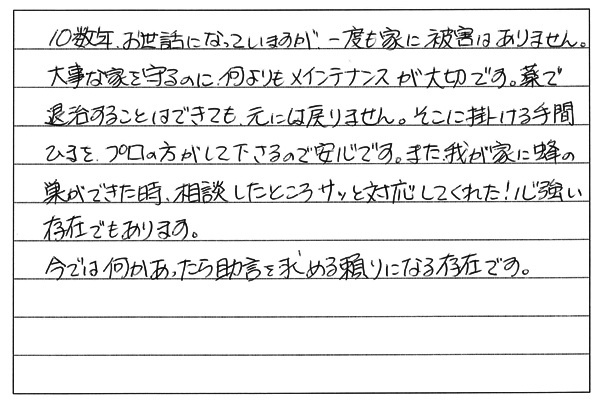 10数年、お世話になっていますが、一度も家に被害はありません。
大事な家を守るのに、何よりもメインテナンスが大切です。薬で
退治することはできても、元には戻りません。そこに掛ける手間
ひまを、プロの方がして下さるので安心です。また、我が家に蜂の
巣ができた時、相談したところサッと対応してくれた！心強い
存在でもあります。
今では何かあったら助言を求める頼りになる存在です。